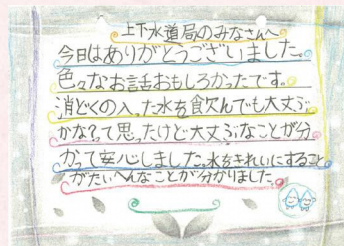 上下水道局のみなさんへ
今日はありがとうございました。
色々なお話おもしろかったです。
消どくの入った水を飲んでも大丈ぶ
かな?って思ったけど大丈ぶなことが分
かって安心しました。水をきれいにすること
がたいへんなことが分かりました。